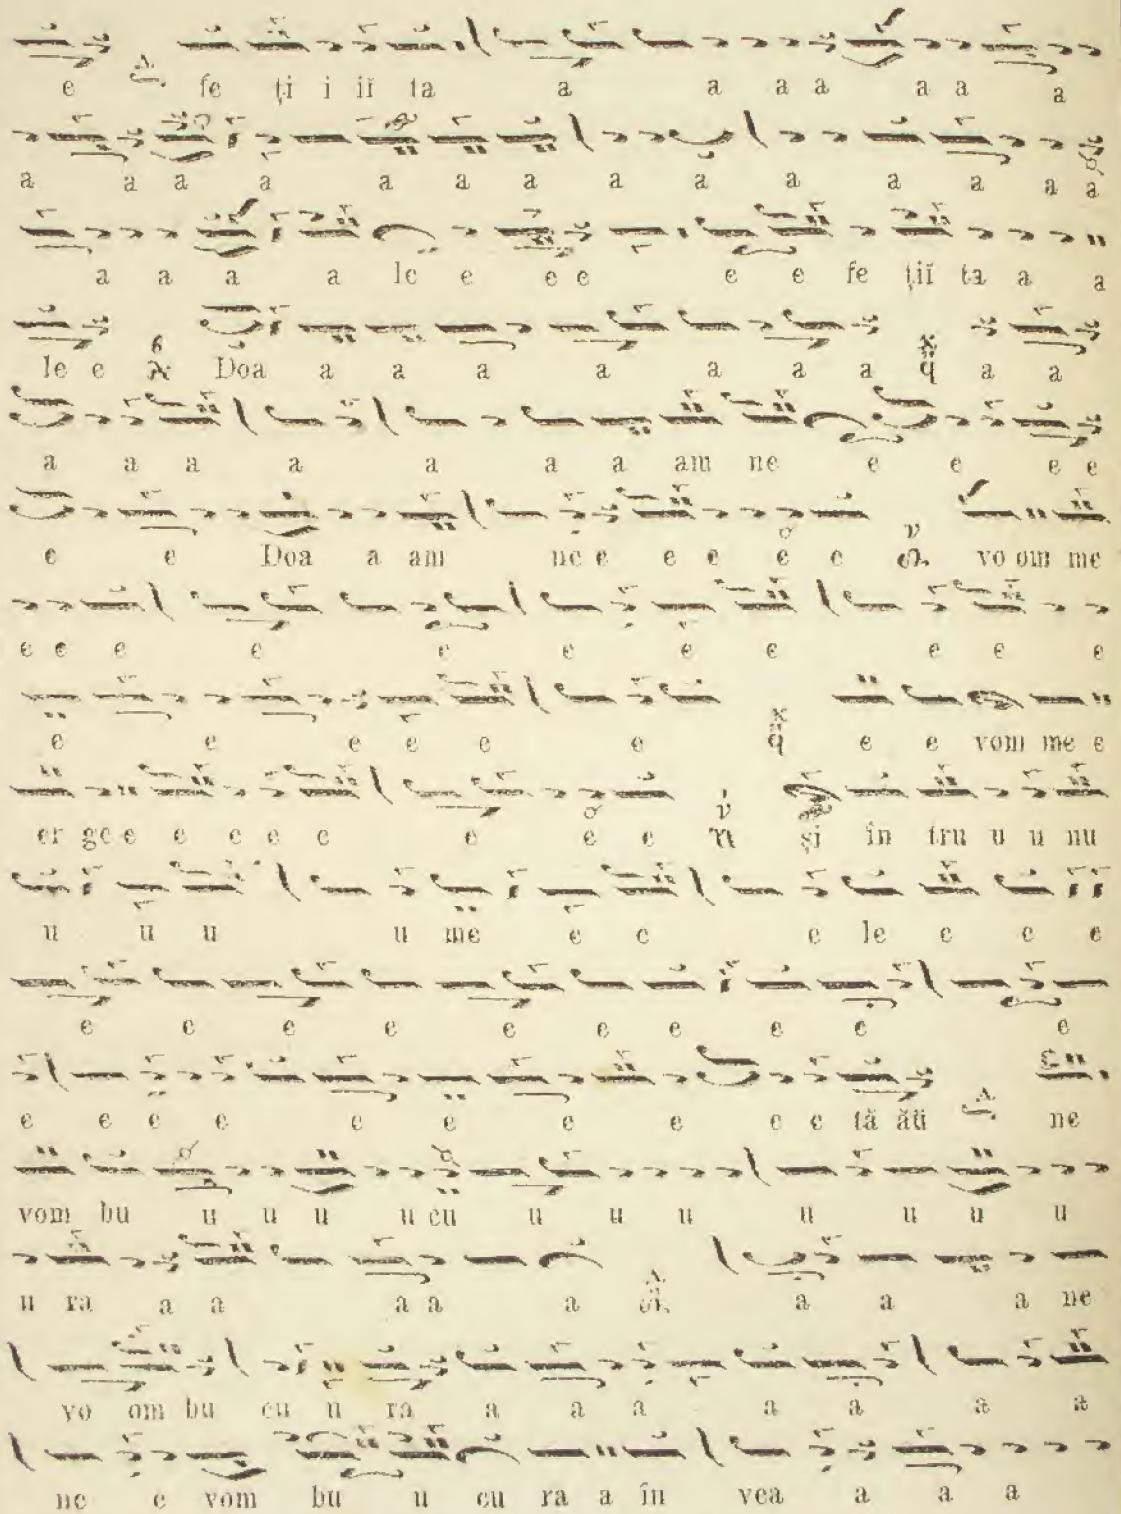 e fe ți i iĭ ta a a a a a a a
a a a a a a a a a a a a a a
a a a a le e e e e e fe țiĭ ta a a
le e Doa a a a a a a a a
a a a a a a a am ne e e e e
e e Doa a am ne e e e e e vo om me
e e e e e e e e e e e
e e e e e e e e vom me e
er ge e e e e e e e e și în tru u u nu
u u u u me e e e le e e e
e e e e e e e e e e
e e e e e e e e e e tă ăŭ ne
vom bu u u u u cu u u u u u u u
u ra a a a a a a a a ne
vo om bu cu u ra a a a a a a a
ne e vom bu u cu ra a în vea a a a